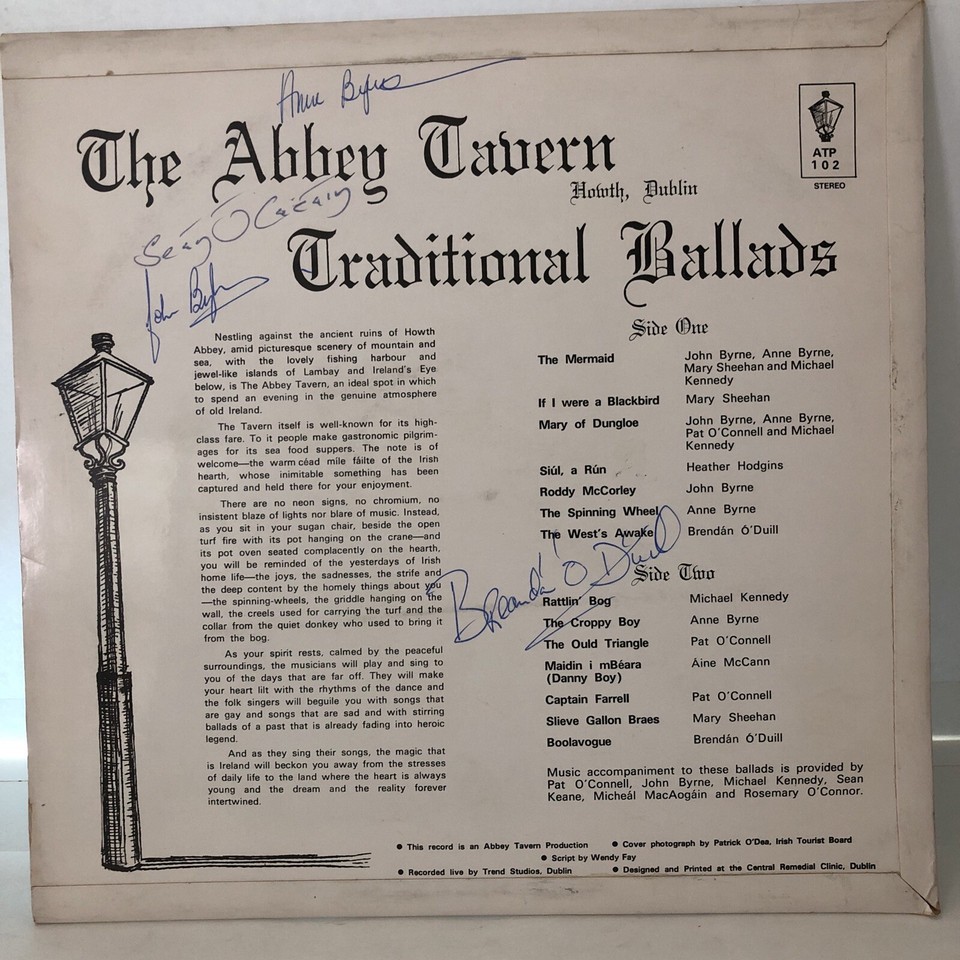 Anne Byrne
The Abbey Tavern
Howth, Dublin
ATP
102
STEREO
Seán Ó
John Byrne
Traditional Ballads
Nestling against the ancient ruins of Howth
Abbey, amid picturesque scenery of mountain and
sea, with the lovely fishing harbour and
jewel-like islands of Lambay and Ireland's Eye
below, is The Abbey Tavern, an ideal spot in which
to spend an evening in the genuine atmosphere
of old Ireland.
The Tavern itself is well-known for its high-
class fare. To it people make gastronomic pilgrim-
ages for its sea food suppers. The note is of
welcome—the warm céad míle fáilte of the Irish
hearth, whose inimitable something has been
captured and held there for your enjoyment.
There are no neon signs, no chromium, no
insistent blaze of lights nor blare of music. Instead,
as you sit in your sugan chair, beside the open
turf fire with its pot hanging on the crane—and
its pot oven seated complacently on the hearth,
you will be reminded of the yesterdays of Irish
home life—the joys, the sadnesses, the strife and
the deep content by the homely things about you
—the spinning-wheels, the griddle hanging on the
wall, the creels used for carrying the turf and the
collar from the quiet donkey who used to bring it
from the bog.
As your spirit rests, calmed by the peaceful
surroundings, the musicians will play and sing to
you of the days that are far off. They will make
your heart lilt with the rhythms of the dance and
the folk singers will beguile you with songs that
are gay and songs that are sad and with stirring
ballads of a past that is already fading into heroic
legend.
And as they sing their songs, the magic that
is Ireland will beckon you away from the stresses
of daily life to the land where the heart is always
young and the dream and the reality forever
intertwined.
Side One
The Mermaid John Byrne, Anne Byrne,
Mary Sheehan and Michael
Kennedy
If I were a Blackbird Mary Sheehan
Mary of Dungloe John Byrne, Anne Byrne,
Pat O'Connell and Michael
Kennedy
Siúl, a Rún Heather Hodgins
Roddy McCorley John Byrne
The Spinning Wheel Anne Byrne
The West's Awake Brendán Ó'Duill
Breandán Ó Duill
Side Two
Rattlin' Bog Michael Kennedy
The Croppy Boy Anne Byrne
The Ould Triangle Pat O'Connell
Maidin i mBéara Áine McCann
(Danny Boy)
Captain Farrell Pat O'Connell
Slieve Gallon Braes Mary Sheehan
Boolavogue Brendán Ó'Duill
Music accompaniment to these ballads is provided by
Pat O'Connell, John Byrne, Michael Kennedy, Sean
Keane, Micheál MacAogáin and Rosemary O'Connor.
● This record is an Abbey Tavern Production ● Cover photograph by Patrick O'Dea, Irish Tourist Board
● Script by Wendy Fay
● Recorded live by Trend Studios, Dublin ● Designed and Printed at the Central Remedial Clinic, Dublin